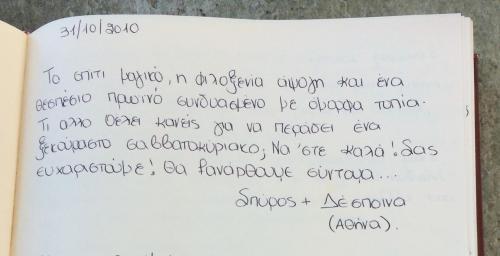 31/10/2010
Το σπίτι μαγικό, η φιλοξενία άψογη και ένα
θεσπέσιο πρωινό συνδυασμένο με όμορφα τοπία.
Τι άλλο θέλει κανείς για να περάσει ένα
ξεκούραστο σαββατοκύριακο; Να 'στε καλά! Σας
ευχαριστούμε! Θα ξανάρθουμε σύντομα...
Σπύρος + Δέσποινα
(Αθήνα).